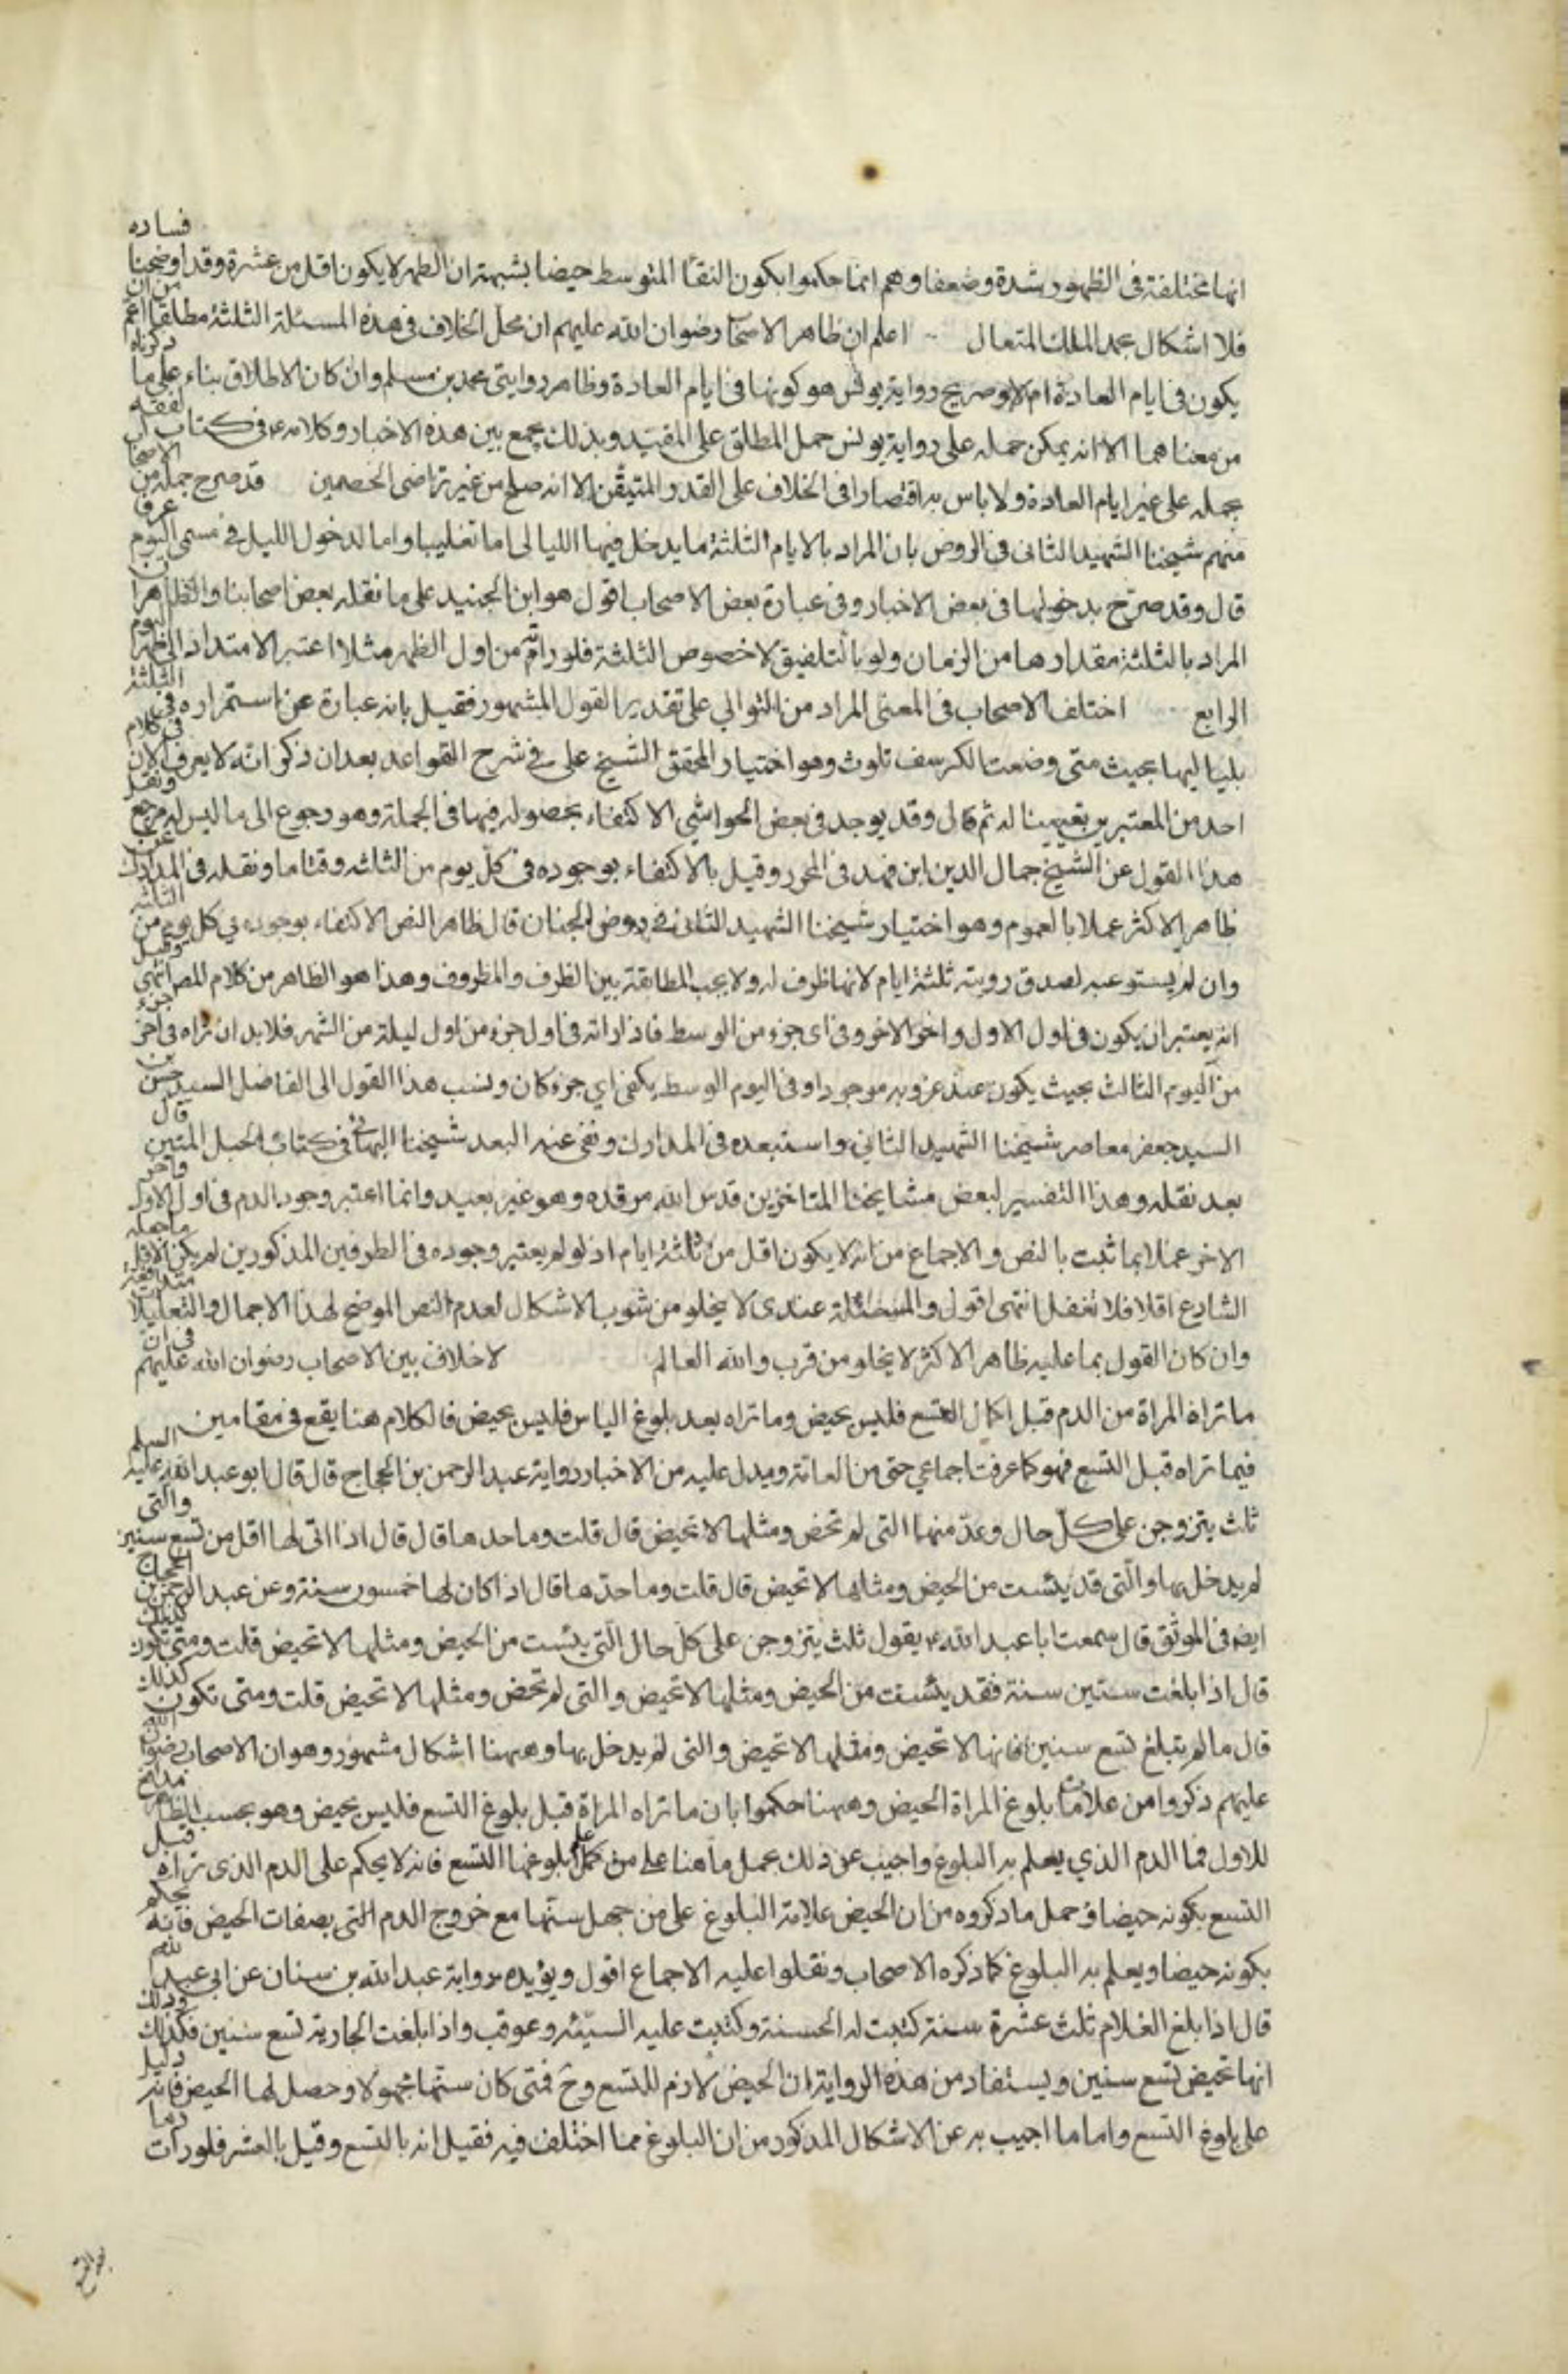 انها مختلفة فى الظهور شدة وضعفا وهم انما حكموا بكون النقا المتوسط حيضا بشبهة ان الطهر لا يكون اقل من عشرة وقد اوضحنا فساده
فلا اشكال بحمد الملك المتعال اعلم ان ظاهر الاصحاب رضوان الله عليهم ان محل الخلاف فى هذه المسئلة الثلثة مطلقا اعم من ان
يكون فى ايام العادة ام لا وصريح رواية يونس هو كونها فى ايام العادة وظاهر روايتى محمد بن مسلم وان كان الاطلاق بناء على ما ذكرناه
من معناهما الا انه يمكن حمله على رواية يونس حمل المطلق على المقيد وبذلك يجمع بين هذه الاخبار وكلامه ع فى كتاب الفقه
بحمله على غير ايام العادة ولا باس به اقتصارا فى الخلاف على القدر المتيقن الا انه صلح من غير تراضى الخصمين قد صرح جملة من الاصحاب
منهم شيخنا الشهيد الثانى فى الروض بان المراد بالايام الثلثة ما يدخل فيها الليالى اما تغليبا واما لدخول الليل فى مسمى اليوم عرفا
قال وقد صرح بدخولها فى بعض الاخبار وفى عبارة بعض الاصحاب اقول هو ابن الجنيد على ما نقله بعض اصحابنا والظاهر ان
المراد بالثلثة مقدارها من الزمان ولو بالتلفيق لا خصوص الثلثة فلو راته من اول الظهر مثلا اعتبر الامتداد الى ظهر اليوم
الرابع اختلف الاصحاب فى المعنى المراد من التوالي على تقدير القول المشهور فقيل بانه عبارة عن استمراره فى الثلثة
بلياليها بحيث متى وضعت الكرسف تلوث وهو اختيار المحقق الشيخ على فى شرح القواعد بعد ان ذكر انه لا يعرف الان فى كلام
احد من المعتبرين تعيينا له ثم قال وقد يوجد فى بعض الحواشي الاكتفاء بحصوله فيها فى الجملة وهو رجوع الى ما ليس له مرجع ونقل
هذا القول عن الشيخ جمال الدين ابن فهد فى المحرر وقيل بالاكتفاء بوجوده فى كل يوم من الثلثه وقتا ما ونقله فى المدارك عن
ظاهر الاكثر عملا بالعموم وهو اختيار شيخنا الشهيد الثانى فى روض الجنان قال ظاهر النص الاكتفاء بوجوده في كل يوم من الثلثة
وان لم يستوعبه لصدق رويته ثلثة ايام لانها ظرف له ولا يجب المطابقة بين الظرف والمظروف وهذا هو الظاهر من كلام المص انتهى وقيل
انه يعتبر ان يكون فى اول الاول واخر الاخر وفى اى جزء من الوسط فاذا راته فى اول جزء من اول ليلة من الشهر فلا بد ان تراه فى اخر جزء
من اليوم الثالث بحيث يكون عند غروبه موجودا وفى اليوم الوسط يكفى اي جزء كان ونسب هذا القول الى الفاضل السيد حسن بن
السيد جعفر معاصر شيخنا الشهيد الثاني واستبعده فى المدارك ونفى عنه البعد شيخنا البهائى فى كتاب الحبل المتين قال
بعد نقله وهذا التفسير لبعض مشايخنا المتاخرين قدس الله مرقده وهو غير بعيد وانما اعتبر وجود الدم فى اول الاول واخر
الاخر عملا بما ثبت بالنص والاجماع من انه لا يكون اقل من ثلثة ايام اذ لو لم يعتبر وجوده فى الطرفين المذكورين لم يكن الاقل ما جعله
الشارع اقلا فلا تغفل انتهى اقول والمسئلة عندى لا يخلو من شوب الاشكال لعدم النص الموضح لهذا الاجمال والتعليلات متدافعة
وان كان القول بما عليه ظاهر الاكثر لا يخلو من قرب والله العالم لا خلاف بين الاصحاب رضوان الله عليهم فى ان
ما تراه المراة من الدم قبل اكمال التسع فليس بحيض وما تراه بعد بلوغ الياس فليس بحيض فالكلام هنا يقع فى مقامين
فيما تراه قبل التسع فهو كما عرفت اجماعي حتى من العامة ويدل عليه من الاخبار رواية عبد الرحمن بن الحجاج قال قال ابو عبد الله عليه السلم
ثلث يتزوجن على كل حال وعد منها التى لم تحض ومثلها لا تحيض قال قلت وما حدها قال قال اذا اتى لها اقل من تسع سنين والتى
لم يدخل بها والتى قد يئست من الحيض ومثلها لا تحيض قال قلت وما حدها قال اذا كان لها خمسون سنة وعن عبد الرحمن بن الحجاج
ايضا فى الموثق قال سمعت ابا عبد الله ع يقول ثلث يتزوجن على كل حال التي يئست من الحيض ومثلها لا تحيض قلت ومتى تكون كذلك
قال اذا بلغت ستين سنة فقد يئست من الحيض ومثلها لا تحيض والتى لم تحض ومثلها لا تحيض قلت ومتى تكون كذلك
قال ما لم تبلغ تسع سنين فانها لا تحيض ومثلها لا تحيض والتى لم يدخل بها وههنا اشكال مشهور وهو ان الاصحاب رضوان الله
عليهم ذكروا من علامات بلوغ المراة الحيض وههنا حكموا بان ما تراه المراة قبل بلوغ التسع فليس بحيض وهو بحسب الظاهر مدافع
للاول فما الدم الذي يعلم به البلوغ واجيب عن ذلك بحمل ما هنا على من علم بلوغها التسع فانه لا يحكم على الدم الذى تراه قبل
التسع بكونه حيضا وحمل ما ذكروه من ان الحيض علامة البلوغ على من جهل سنها مع خروج الدم التى بصفات الحيض فانه يحكم
بكونه حيضا ويعلم به البلوغ كما ذكره الاصحاب ونقلوا عليه الاجماع اقول ويؤيده رواية عبد الله بن سنان عن ابى عبد الله
قال اذا بلغ الغلام ثلث عشرة سنة كتبت له الحسنة وكتبت عليه السيئه وعوقب واذا بلغت الجارية تسع سنين فكذلك وذلك
انها تحيض لتسع سنين ويستفاد من هذه الرواية ان الحيض لازم للتسع وح فمتى كان سنها مجهولا وحصل لها الحيض فانه دليل
على بلوغ التسع واما ما اجيب به عن الاشكال المذكور من ان البلوغ مما اختلف فيه فقيل انه بالتسع وقيل بالعشر فلو رات دما